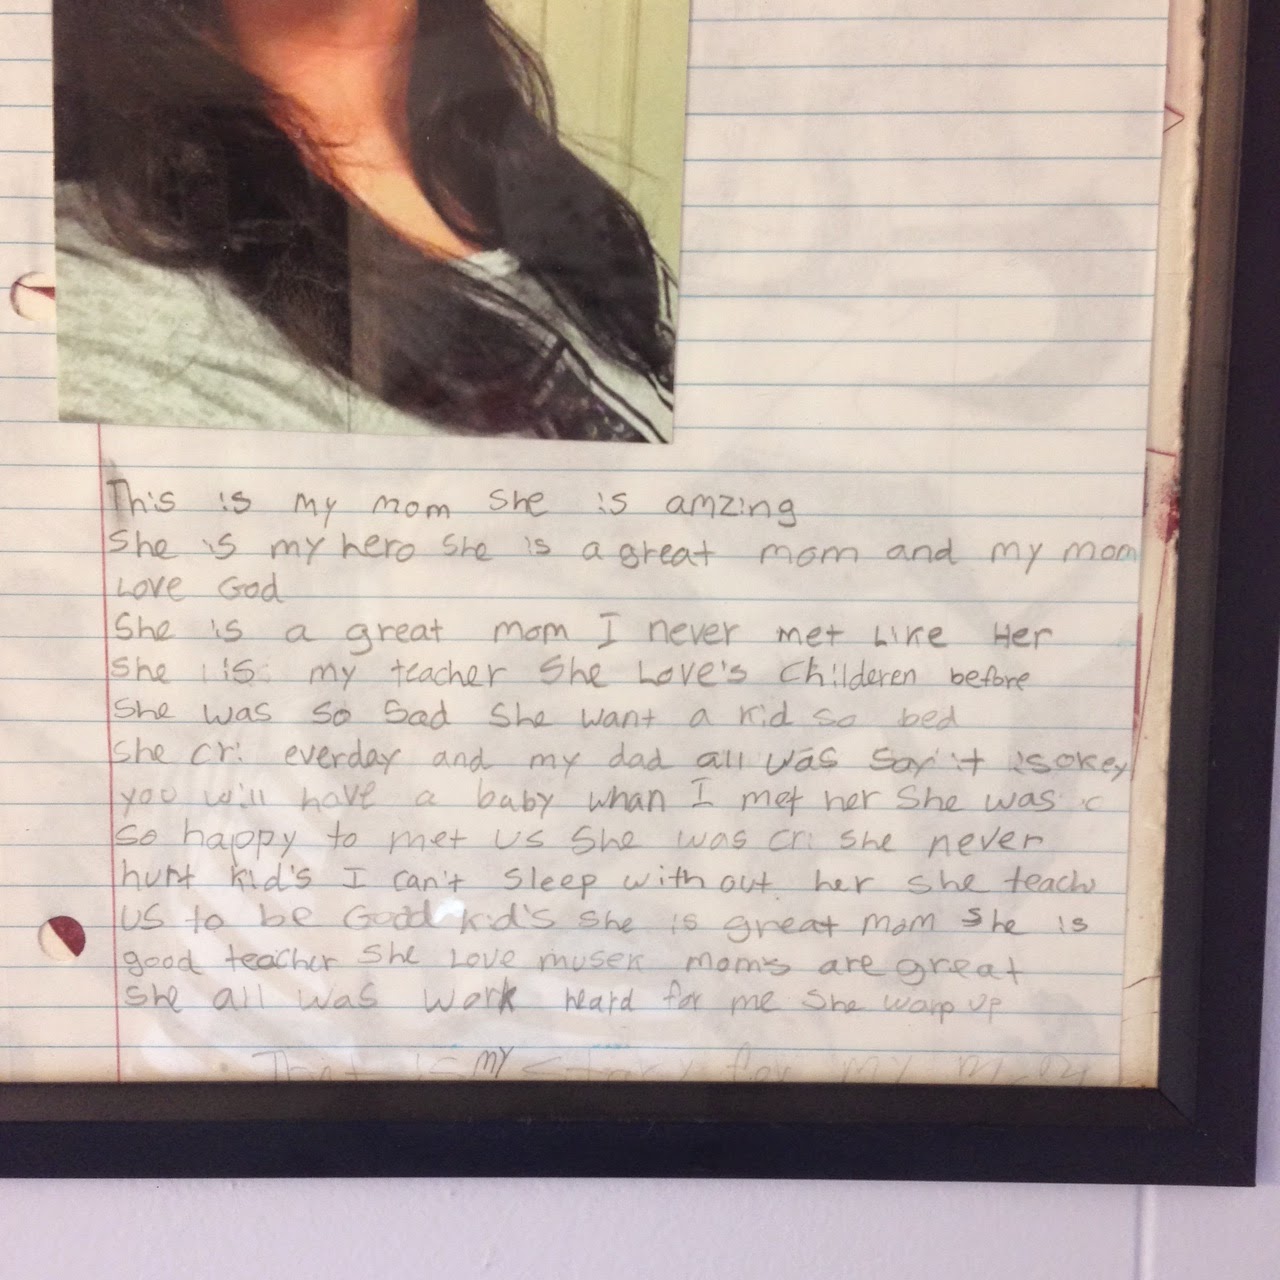 This is my mom she is amzing
she is my hero she is a great mom and my mom
Love God
She is a great mom I never met Like Her
she is my teacher She Love's Childeren before
she was so Sad she want a kid so bed
she cri everday and my dad all was say it is okey
you will have a baby whan I met her She was
so happy to met us She was cri she never
hurt kid's I can't Sleep with out her she teach
us to be Good kid's she is great mom she is
good teacher She Love musek mom's are great
she all was work heard for me She warp up
That is my story for my mom